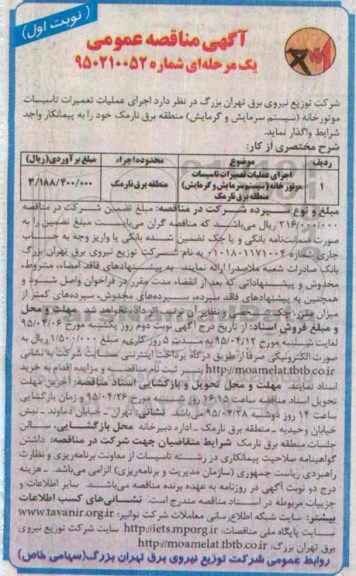 ( نوبت اول )
آگهی مناقصه عمومی
یک مرحله‌ای شماره ۹۵۰۲۱۰۰۵۲
شرکت توزیع نیروی برق تهران بزرگ در نظر دارد اجرای عملیات تعمیرات تاسیسات
موتورخانه (سیستم سرمایش و گرمایش) منطقه برق نارمک خود را به پیمانکار واجد
شرایط واگذار نماید.
شرح مختصری از کار:
ردیف موضوع محدوده اجراء مبلغ برآوردی (ریال)
۱ اجرای عملیات تعمیرات تاسیسات موتورخانه (سیستم سرمایش و گرمایش) منطقه برق نارمک منطقه برق نارمک ۳/۱۸۸/۴۰۰/۰۰۰
مبلغ و نوع سپرده شرکت در مناقصه: مبلغ تضمین شرکت در مناقصه
۲۱۶/۰۰۰/۰۰۰ ریال می‌باشد که مناقصه گران می‌بایست مبلغ تضمین را به
صورت ضمانت‌نامه بانکی و یا چک تضمین شده بانکی یا واریز وجه به حساب
جاری شماره به نام شرکت توزیع نیروی برق تهران بزرگ
بانک صادرات شعبه ملاصدرا ارائه نمایند. به پیشنهادهای فاقد امضاء، مشروط،
مخدوش و پیشنهاداتی که بعد از انقضاء مدت مقرر در فراخوان واصل شود و
همچنین به پیشنهادهای فاقد سپرده، سپرده‌های مخدوش، سپرده‌های کمتر از
میزان مقرر، چک شخصی و نظایر آن ترتیب اثر داده نخواهد شد. مهلت و محل
و مبلغ فروش اسناد: از تاریخ درج آگهی نوبت دوم روز یکشنبه مورخ ۹۵/۰۴/۰۶
لغایت شنبه مورخ ۹۵/۰۴/۱۲ به مدت ۵ روز کاری، مبلغ ۱/۵۰۰/۰۰۰ ریال به
صورت الکترونیکی صرفاً از طریق درگاه پرداخت اینترنتی سایت شرکت به نشانی
http://moamelat.tbtb.co.ir نسبت به ثبت نام مناقصه و مزایده اقدام به خرید
اسناد نمایند. مهلت و محل تحویل و بازگشایی اسناد مناقصه: آخرین مهلت
تحویل اسناد مناقصه ساعت ۱۶:۱۵ روز شنبه مورخ ۹۵/۰۴/۲۶ و زمان بازگشایی
ساعت ۱۴ روز دوشنبه ۹۵/۰۴/۲۸ می‌باشد. نشانی: تهران - خیابان دماوند - نبش
خیابان وحیدیه - منطقه برق نارمک - اداره دبیرخانه محل بازگشایی، سالن
جلسات منطقه برق نارمک شرایط متقاضیان جهت شرکت در مناقصه: داشتن
گواهینامه صلاحیت پیمانکاری در رشته تاسیسات از معاونت برنامه‌ریزی و نظارت
راهبردی ریاست جمهوری (سازمان مدیریت و برنامه‌ریزی) الزامی می‌باشد. - هزینه
درج دو نوبت آگهی در روزنامه به عهده برنده مناقصه می‌باشد. سایر اطلاعات و
جزییات مربوطه در اسناد مناقصه مندرج است. نشانی‌های کسب اطلاعات
بیشتر: سایت شبکه اطلاع رسانی معاملات شرکت توانیر: www.tavanir.org.ir
سایت پایگاه ملی مناقصات: http://iets.mporg.ir سایت شرکت توزیع نیروی
برق تهران بزرگ: http://moamelat.tbtb.co.ir
روابط عمومی شرکت توزیع نیروی برق تهران بزرگ (سهامی خاص)